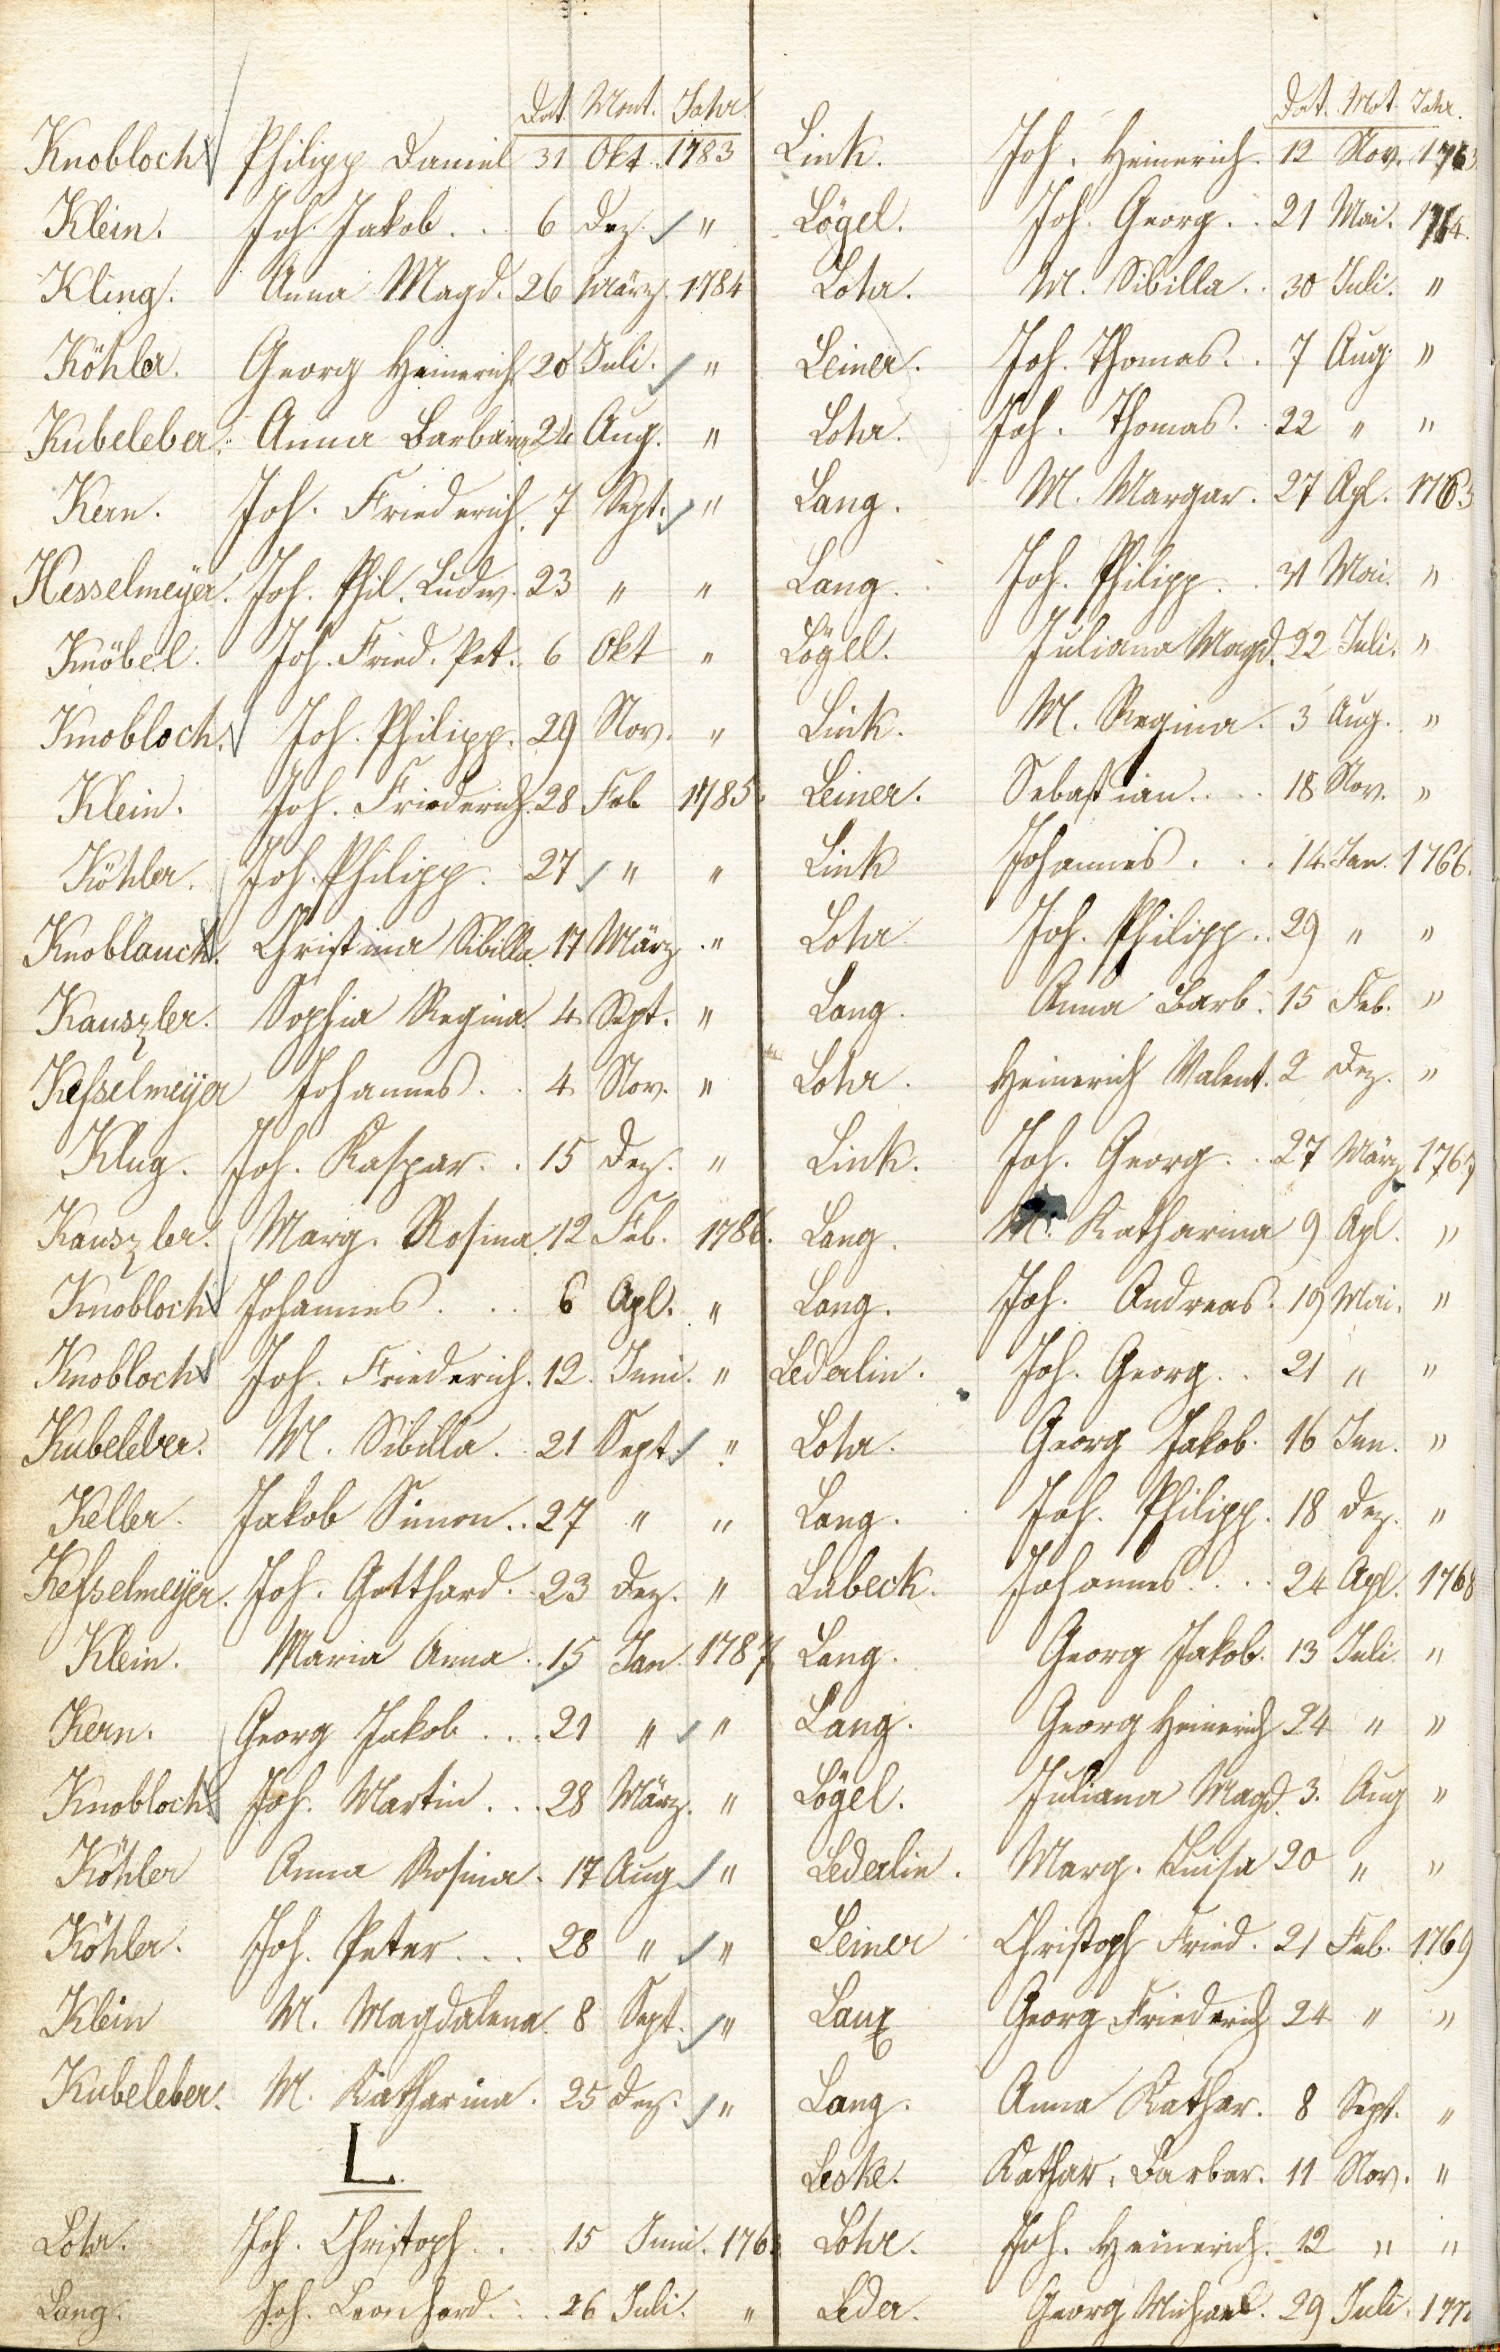 Dat. Mont. Jahr.
Knobloch Philipp Daniel 31 Okt. 1783
Klein. Joh. Jakob. . . 6 Dez. "
Kling. Anna Magd. 26 März. 1784
Köhler. Georg Heinerich 20 Juli. "
Kubeleber. Anna Barbara 24 Aug. "
Kern. Joh. Friederich. 7 Sept. "
Kesselmeÿer. Joh. Phil. Ludw. 23 " "
Knöbel. Joh. Fried. Pet. 6 Okt "
Knobloch. Joh. Philipp. 29 Nov. "
Klein. Joh. Friederich. 28 Feb 1785.
Köhler. Joh. Philipp. 27 " "
Knoblauch. Christina Sibilla. 17 März "
Kauszler. Sophia Regina. 4 Sept. "
Keſselmeÿer Johannes. . 4. Nov. "
Klug. Joh. Kaspar. . 15 Dez. "
Kauszler. Marg. Rosina. 12 Feb. 1786.
Knobloch Johannes. . . 6 Apl. "
Knobloch Joh. Friederich. 12. Juni. "
Kubeleber. M. Sibilla. . 21 Sept. "
Keller. Jakob Simon. . 27 " "
Keſselmeÿer. Joh. Gotthard. . 23 Dez. "
Klein. Maria Anna. . 15 Jan. 1787
Kern. Georg Jakob. . . 21 " "
Knobloch Joh. Martin. . . 28 März. "
Köhler Anna Rosina. 17 Aug "
Köhler. Joh. Peter. . . 28 " "
Klein M. Magdalena. 8 Sept. "
Kubeleber. M. Katharina. 25 Dez. "
L.
Lohr. Joh. Christoph. . 15 Juni. 176
Lang. Joh. Leonhard. . . 26 Juli. "
Dat. Mot. Jahr.
Link. Joh. Heinerich. 12 Nov. 1763
Lögel. Joh. Georg. . 21 Mai. 1764.
Lohr. M. Sibilla. . 30 Juli. "
Leiner. Joh. Thomas. . 7 Aug. "
Lohr. Joh. Thomas. . 22 " "
Lang. M. Margar. 27 Apl. 1765
Lang. Joh. Philipp. . 31 Mai. "
Lögel. Juliana Magd. 22 Juli. "
Link. M. Regina. 3 Aug. "
Leiner. Sebastian. . . . 18 Nov. "
Link Johannes. . . 14. Jan. 1766.
Lohr Joh. Philipp. . 29 " "
Lang. Anna Barb. 15 Feb. "
Lohr. Heinerich Valent. 2 Dez. "
Link. Joh. Georg. . 27 März 1767
Lang. M. Katharina 9 Apl. "
Lang. Joh. Andreas. 19 Mai. "
Lederlin. Joh. Georg. . 21 " "
Lohr. Georg Jakob. 16 Jun. "
Lang. Joh. Philipp. 18 Dez. "
Lübeck. Johannes. . . . 24 Apl. 1768
Lang. Georg Jakob. 13 Juli. "
Lang. Georg Heinerich 24 " "
Lögel. Juliana Magd. 3. Aug "
Lederlin. Marg. Luisa 20 " "
Leiner Christoph Fried. 21 Feb. 1769
Laux Georg Friederich 24 " "
Lang. Anna Kathar. 8 Sept. "
Leske. Kathar. Barbar. 11 Nov. "
Lohr. Joh. Heinerich. 12 " "
Leder. Georg Michael. 29 Juli. 177